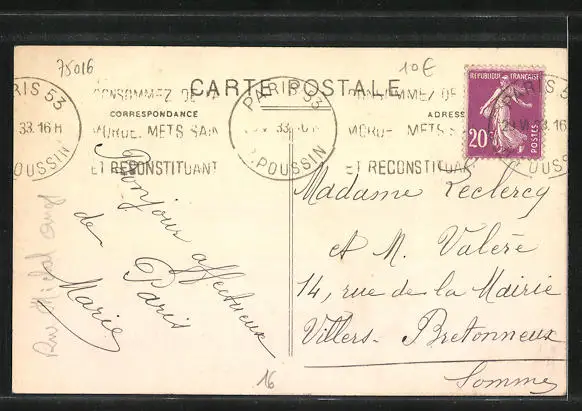 75016
10€
CARTE POSTALE
CORRESPONDANCE
ADRESSE
RÉPUBLIQUE FRANÇAISE
20c
POSTES
PARIS 53
33.16H
POUSSIN
CONSOMMEZ DE LA
MORUE. METS SAIN
ET RECONSTITUANT
PARIS 53
33
POUSSIN
CONSOMMEZ DE
MORUE. METS S
ET RECONSTITUAN
PARIS 53
VI 33.16H
POUSSIN
Bonjour affectueux
de Paris
Marie
Madame Leclercq
et M. Valère
14, rue de la Mairie
Villers-Bretonneux
Somme
Rue Michel ange
16